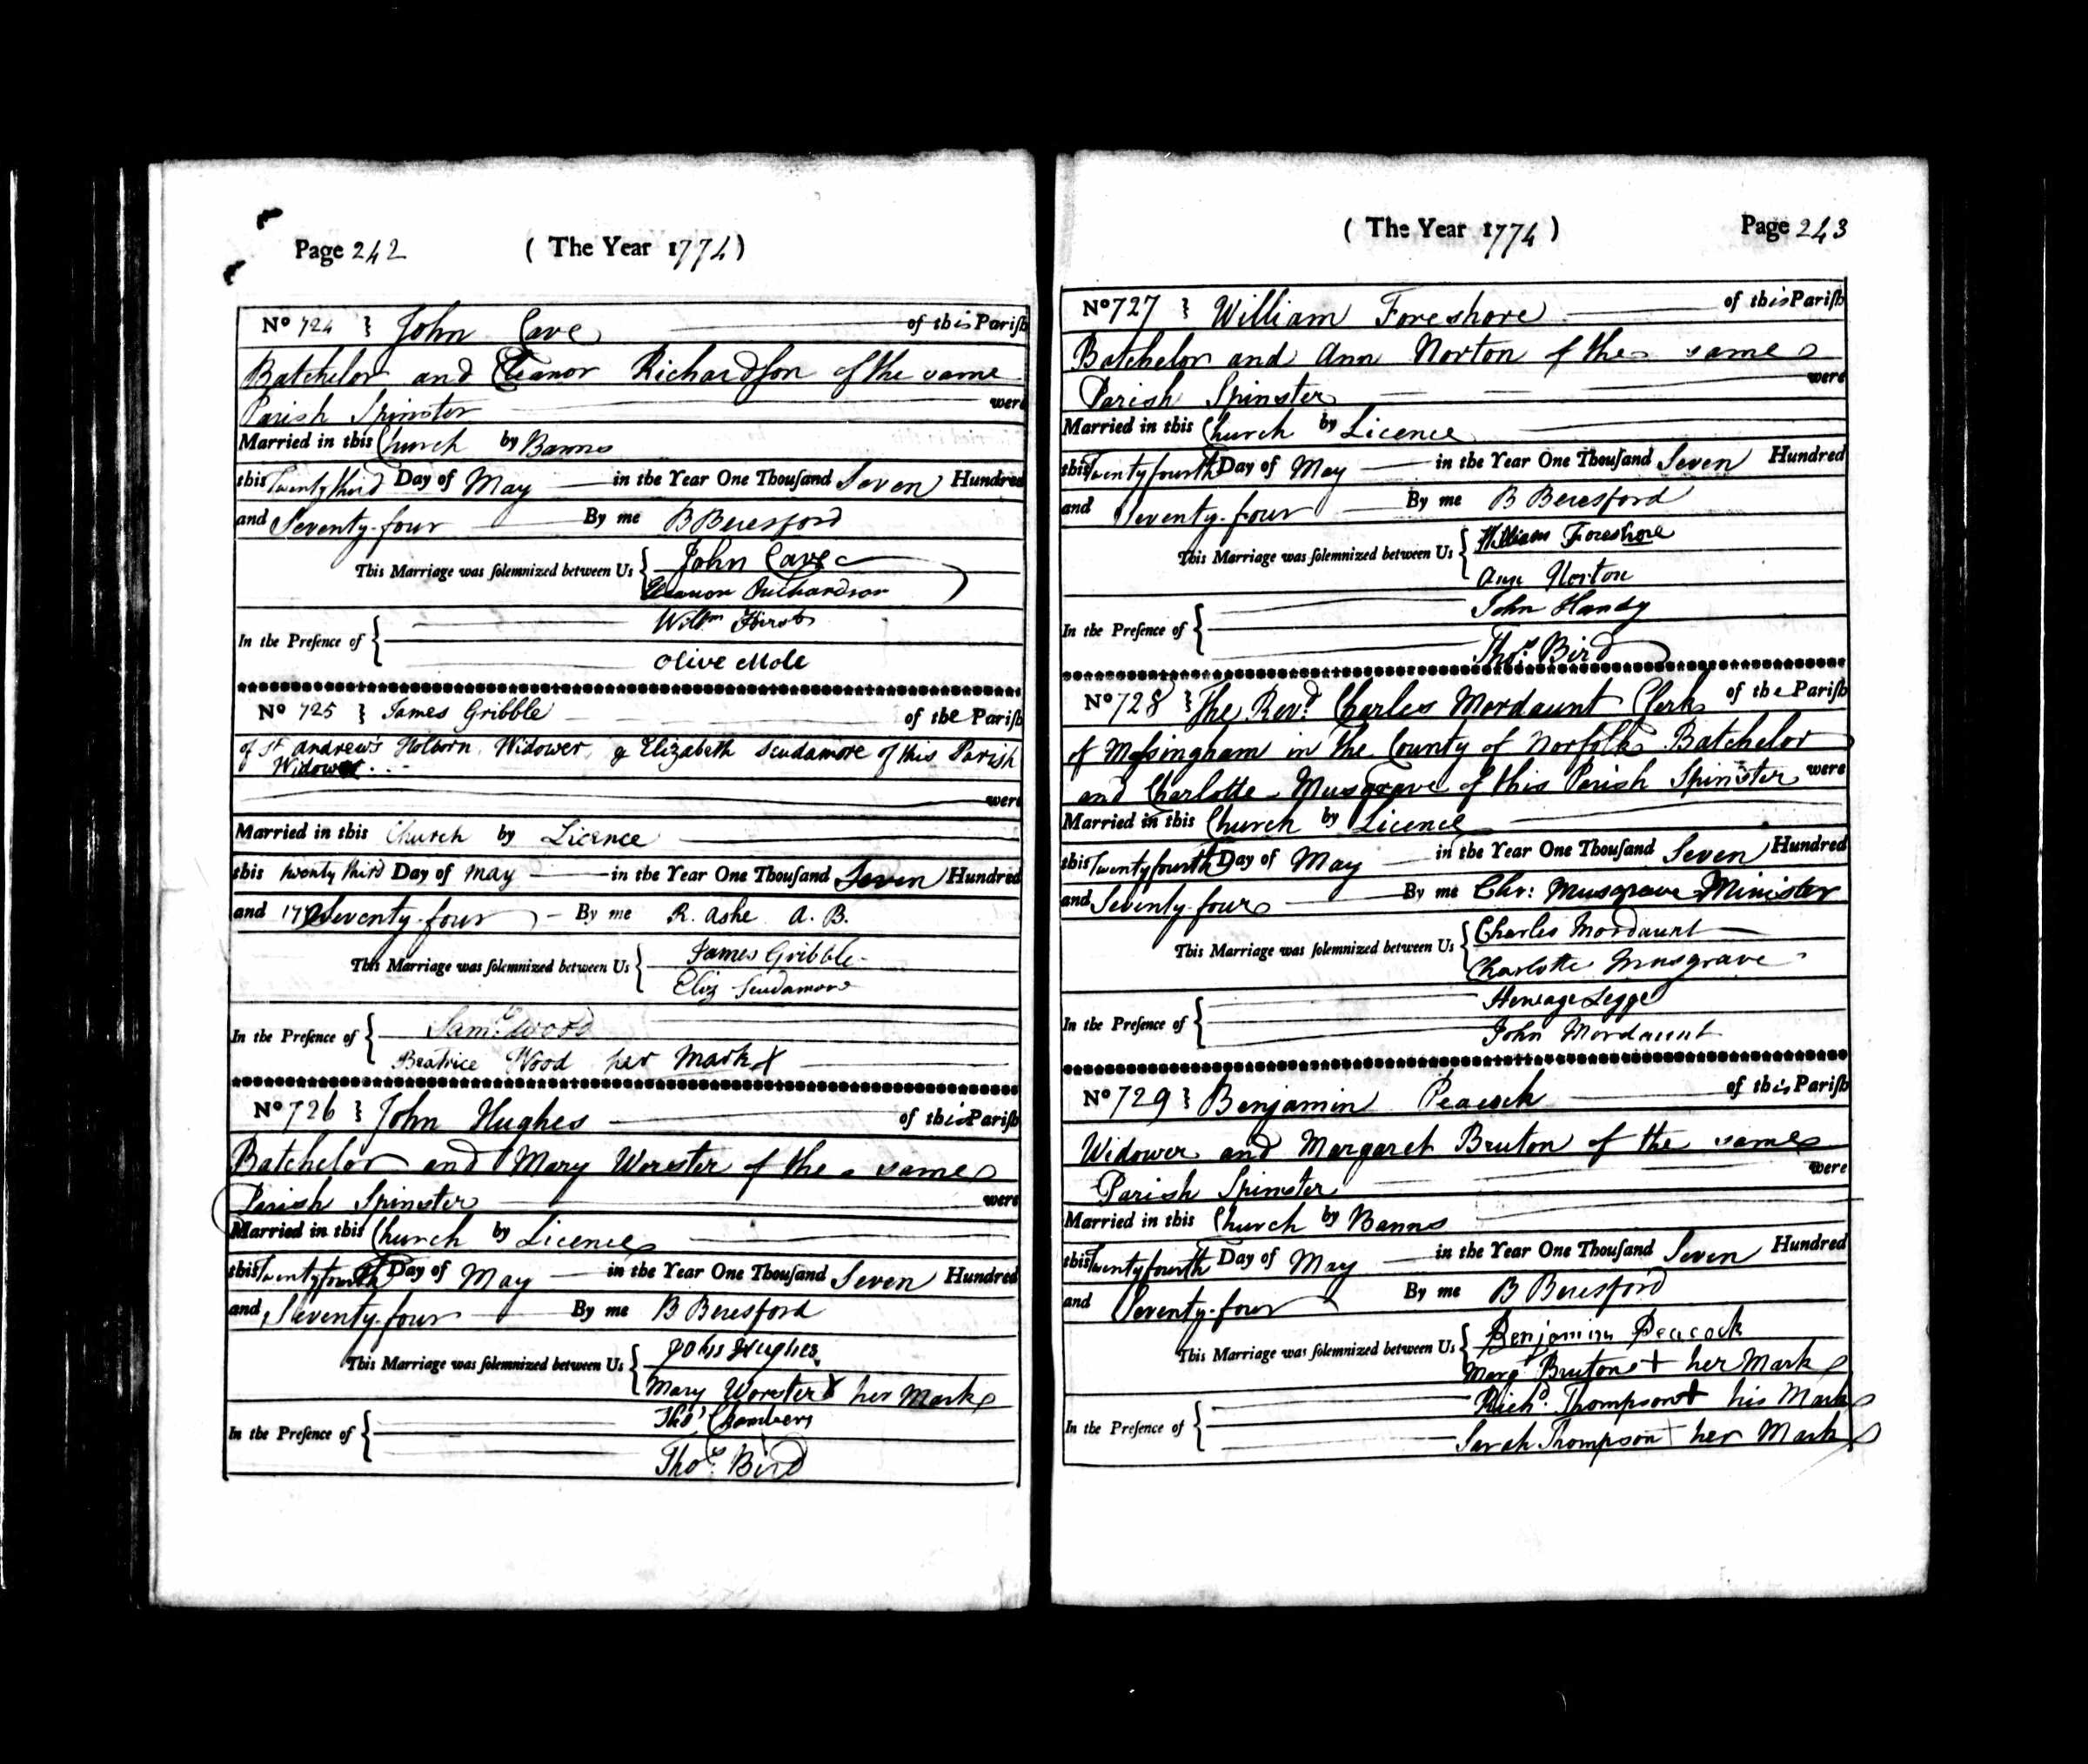 Page 242 ( The Year 1774 )
No 724 } John Cave of this Parish
Batchelor and Eleanor Richardson of the same
Parish Spinster were
Married in this Church by Banns
this Twenty third Day of May in the Year One Thousand Seven Hundred
and Seventy-four By me B Beresford
This Marriage was solemnized between Us { John Cave
Eleanor Richardson
In the Presence of { Willm Hirst
Olive Mole
No 725 } James Gribble of the Parish
of St Andrew's Holborn Widower & Elizabeth Scudamore of this Parish
Widow
were
Married in this Church by Licence
this twenty third Day of May in the Year One Thousand Seven Hundred
and Seventy-four By me R. Ashe A. B.
This Marriage was solemnized between Us { James Gribble
Eliz Scudamore
In the Presence of { Saml Wood
Beatrice Wood her Mark X
No 726 } John Hughes of this Parish
Batchelor and Mary Worster of the same
Parish Spinster were
Married in this Church by Licence
this Twenty fourth Day of May in the Year One Thousand Seven Hundred
and Seventy-four By me B Beresford
This Marriage was solemnized between Us { John Hughes
Mary Worster X her Mark
In the Presence of { Thos Chambers
Thos. Bird
( The Year 1774 ) Page 243
No 727 } William Foreshore of this Parish
Batchelor and Ann Norton of the same
Parish Spinster were
Married in this Church by Licence
this Twenty fourth Day of May in the Year One Thousand Seven Hundred
and Seventy-four By me B Beresford
This Marriage was solemnized between Us { William Foreshore
Ann Norton
In the Presence of { John Handy
Thos. Bird
No 728 } The Revd. Charles Mordaunt Clerk of the Parish
of Massingham in the County of Norfolk Batchelor
and Charlotte Musgrave of this Parish Spinster were
Married in this Church by Licence
this Twenty fourth Day of May in the Year One Thousand Seven Hundred
and Seventy-four By me Chr: Musgrave Minister
This Marriage was solemnized between Us { Charles Mordaunt
Charlotte Musgrave
In the Presence of { Heneage Legge
John Mordaunt
No 729 } Benjamin Peacock of this Parish
Widower and Margaret Bruton of the same
Parish Spinster were
Married in this Church by Banns
this Twenty fourth Day of May in the Year One Thousand Seven Hundred
and Seventy-four By me B Beresford
This Marriage was solemnized between Us { Benjamin Peacock
Margt Bruton + her Mark
In the Presence of { Richd. Thompson + his Mark
Sarah Thompson + her Mark